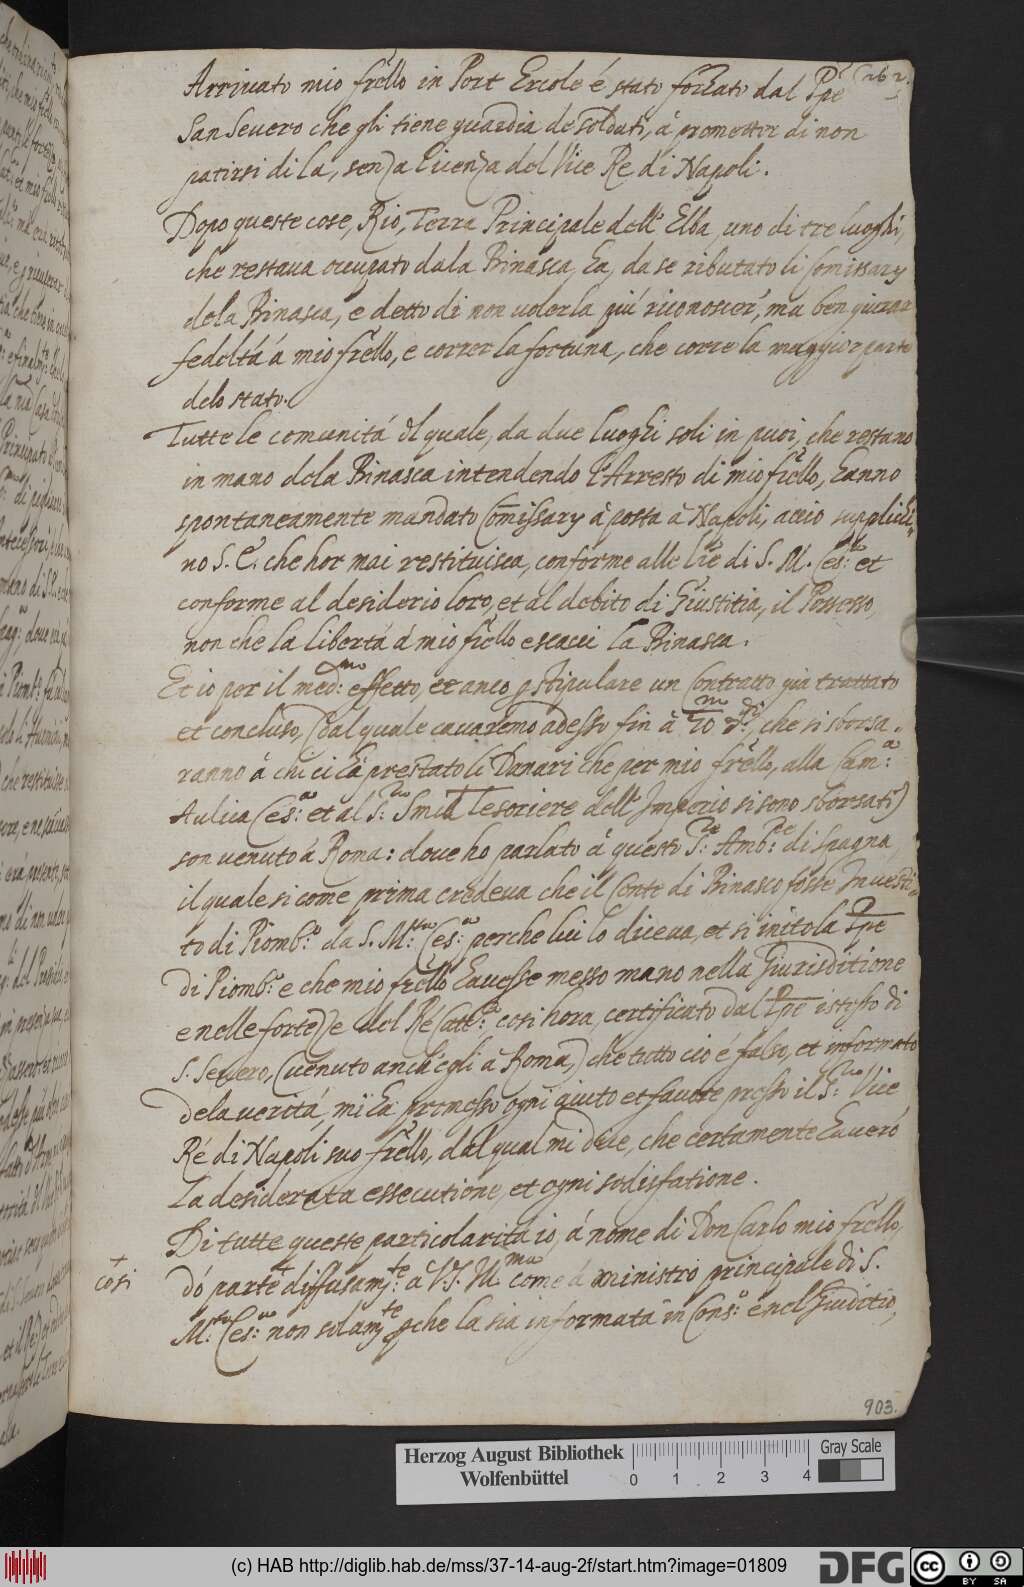 262.
Arrivato mio frello in Port Ercole é stato forzato dal Ppe
San Severo che gli tiene guardia de soldati, á prometter di non
patirsi di la, senza licenza del Vice Re di Napoli.
Dopo queste cose, Rio, Terra Principale dell' Elba, uno di tre luoghi,
che restava occupato dala Binasca, ha, da se ributato li Comissary
dela Binasca, e detto di non volerla piú riconoscer', ma ben giurar
fedeltá á mio frello, e correr la fortuna, che corre la maggior parte
delo stato.
Tutte le comunitá del quale, da due luoghi soli in puoi, che restano
in mano dela Binasca intendendo l'Arresto di mio frello, hanno
spontaneamente mandato Comissary à posta à Napoli, accio supplichi=
no S. E. che hor mai restituisca, conforme alle lre di S. M. Ces: et
conforme al desiderio loro, et al debito di Giustitia, il Possesso,
non che la libertá á mio frello e scacci la Binasca.
Et io per il med:mo effetto, et anco p stipulare un Contratto gia trattato
et concluso, (dal quale cavaremo adesso fin à 20 m che si sborsa-
ranno à chi ci há prestato li Danari che per mio frello, alla Cam:a
Aulica Ces:a et al S: Smid Tesoriere dell' Imperio si sono sborsati)
son venuto á Roma: dove ho parlato á questo S:r Amb:re di Spagna,
il quale si come prima credeva che il Conte di Binasco fosse Investi=
to di Piomb:o da S. M:tà Ces:a perche lui lo diceva, et si intitola Ppe
di Piomb:o e che mio frello havesse messo mano nella Giurisditione
e nelle fortezze del Ré Cat:co cosi hora, certificato dal Ppe istesso di
S. Severo, (venuto anch'egli à Roma,) che tutto cio é falso, et informato
dela veritá, mi ha promesso ogni aiuto et favore presso il S:r Vice
Ré di Napoli suo frello, dal qual mi dice, che certamente haveró
la desiderata essecutione, et ogni sodisfatione.
Di tutte queste particolaritá io, á nome di Don Carlo mio frello,
+
cosi
dó parte + diffusam:te à V. S. Ill:ma come á ministro principale di S.
M:tà Ces:a non solam:te pche la sia informata in Cons:o e nel Giuditio,
903.
Herzog August Bibliothek
Wolfenbüttel
0 1 2 3 4
Gray Scale
(c) HAB http://diglib.hab.de/mss/37-14-aug-2f/start.htm?image=01809
DFG
cc BY SA